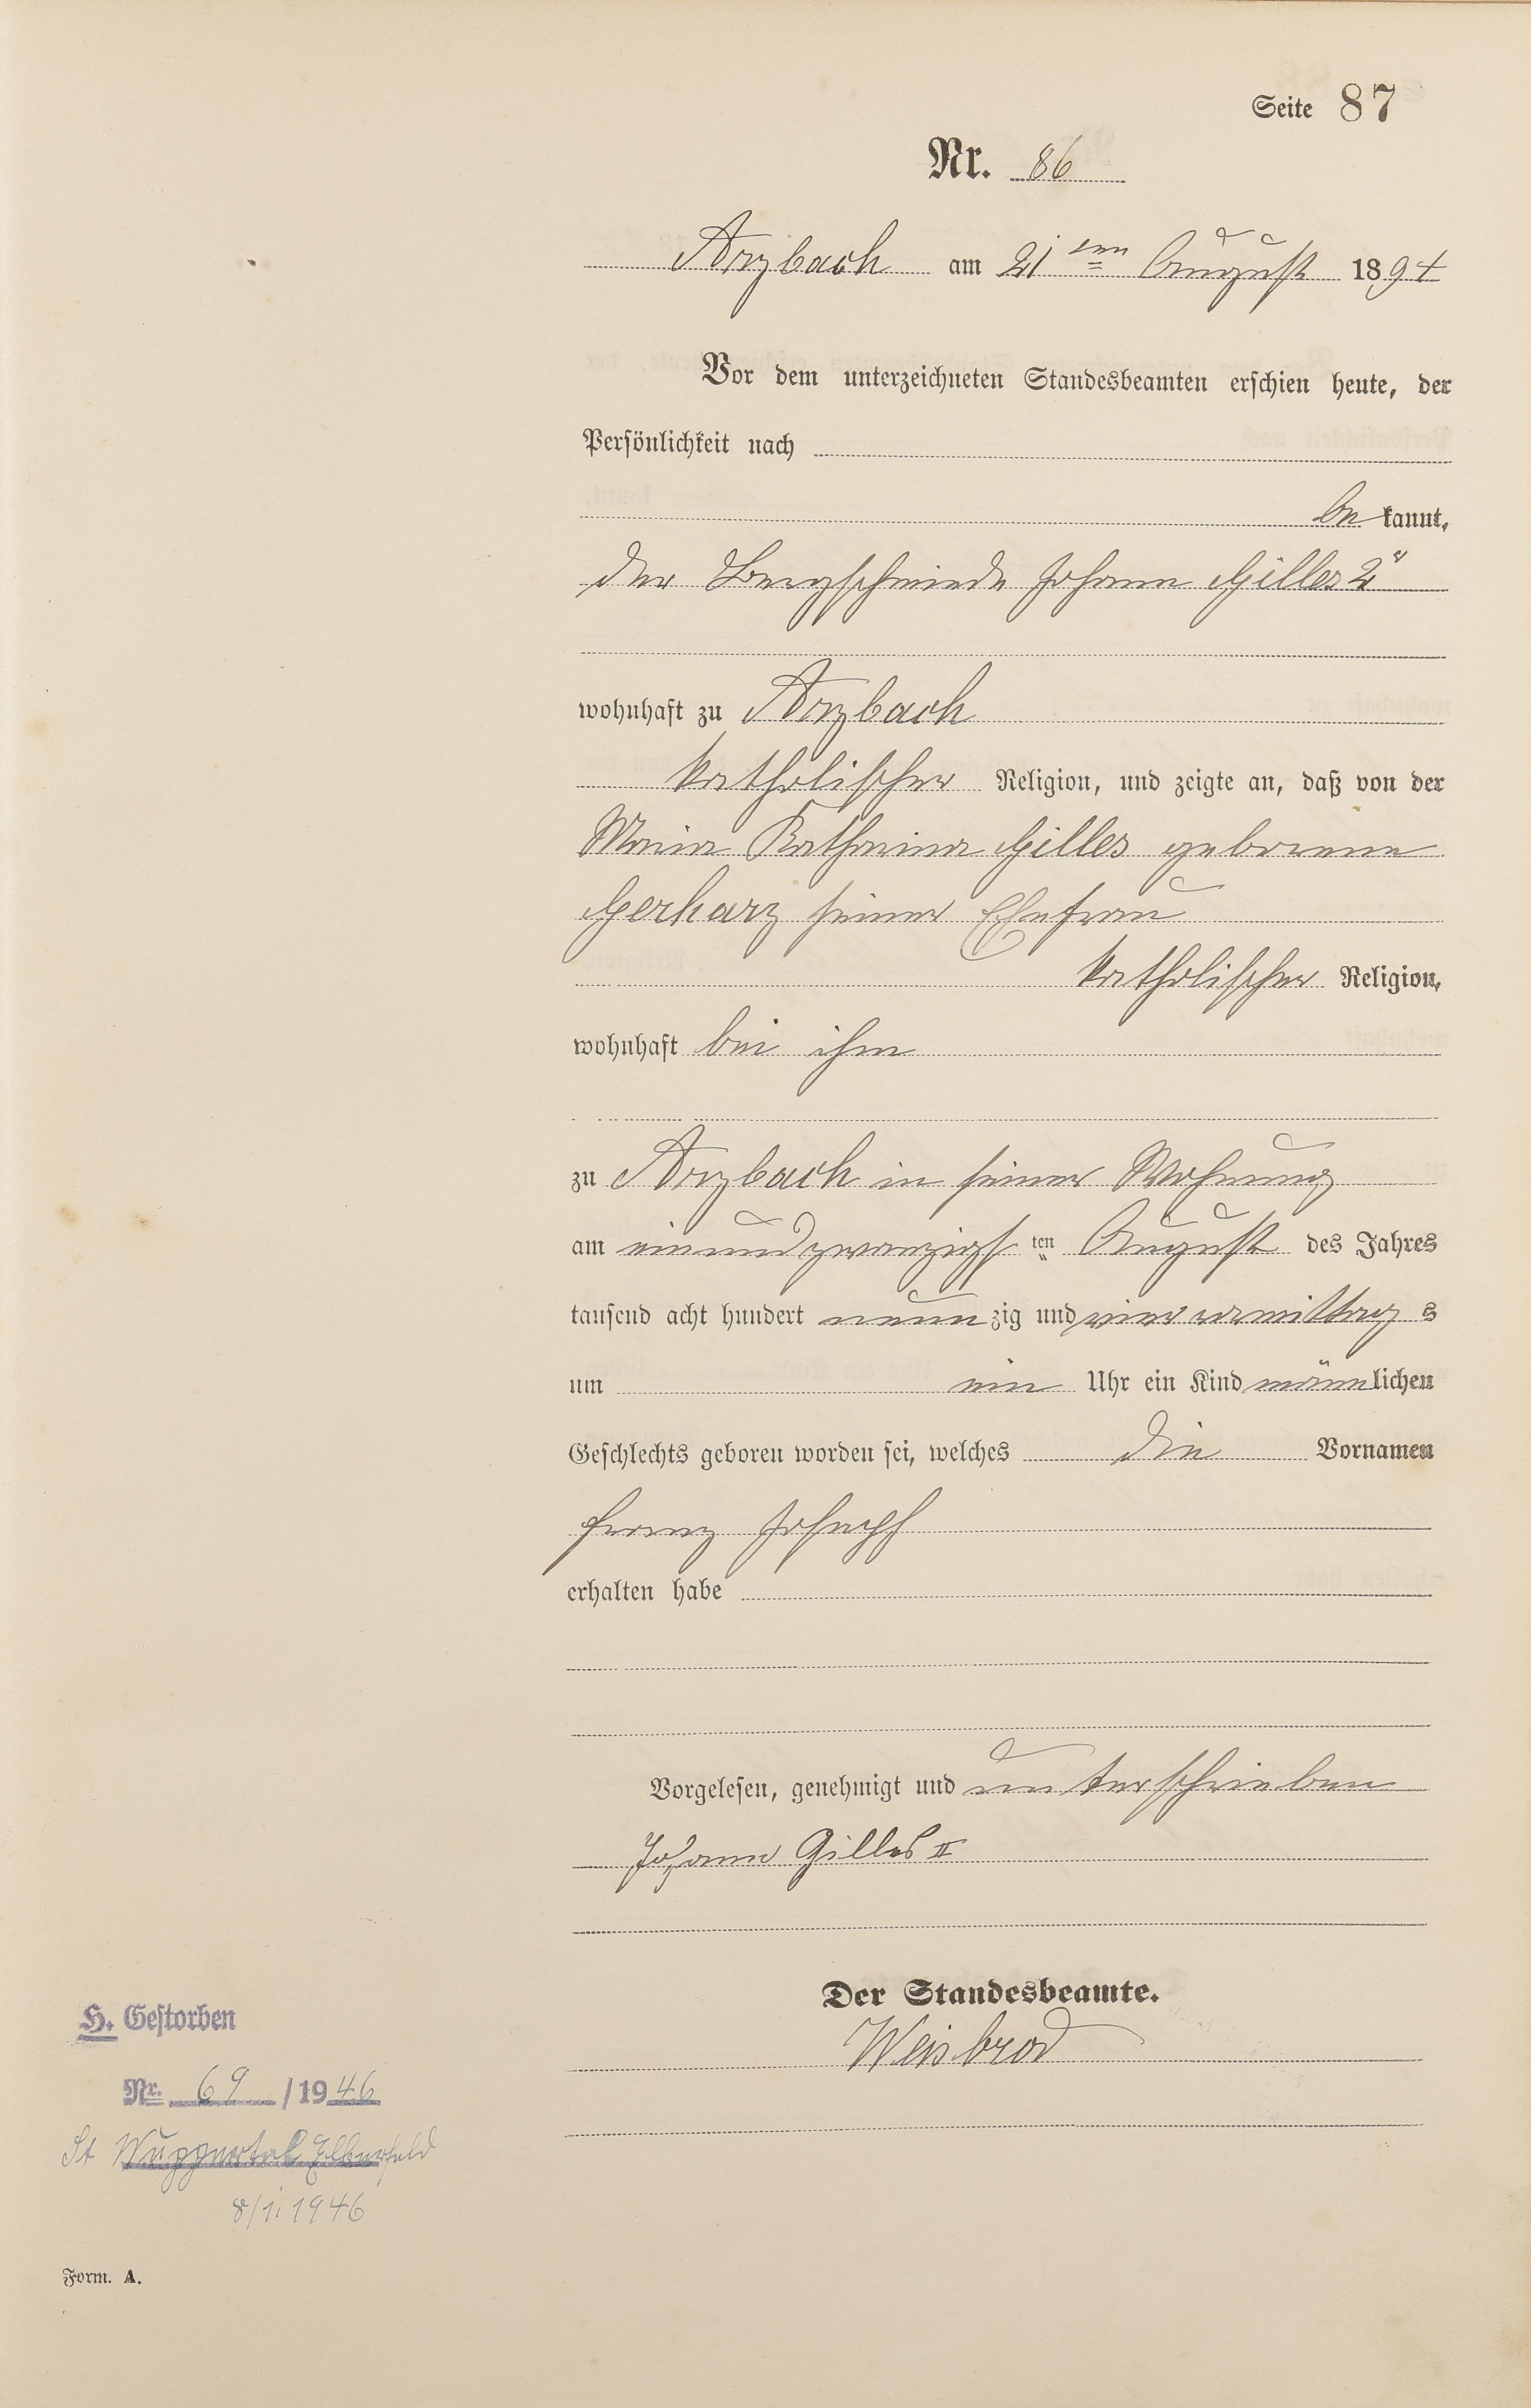 Seite 87
Nr. 86
Arzbach am 21ten August 1894
Vor dem unterzeichneten Standesbeamten erschien heute, der
Persönlichkeit nach
be kannt,
der Bergschmiede Johann Gilles 2r
wohnhaft zu Arzbach
katholischer Religion, und zeigte an, daß von der
Maria Katharina Gilles geborene
Gerharz seiner Ehefrau
katholischer Religion,
wohnhaft bei ihm
zu Arzbach in seiner Wohnung
am einundzwanzigsten August des Jahres
tausend acht hundert neunzig und vier vormittags
um ein Uhr ein Kind männlichen
Geschlechts geboren worden sei, welches die Vornamen
Franz Joseph
erhalten habe
Vorgelesen, genehmigt und unterschrieben
Johann Gilles II
Der Standesbeamte.
Weisbrod
H. Gestorben
Nr. 69 /1946
St Wuppertal Elberfeld
8/1. 1946
Form. A.